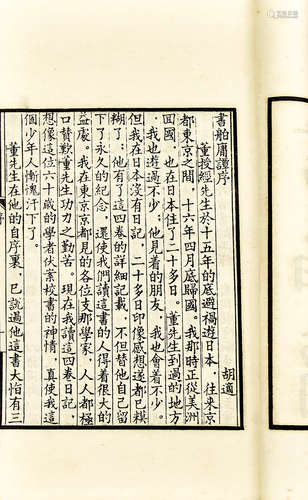 書舶庸譚序
胡適
董授經先生於十五年的底避禍遊日本，往來京
都東京之間，十六年四月底歸國。我那時正從美洲
囘國，也在日本住了二十多日。董先生到過的地方
，我也遊過不少；他見着的朋友，我也會着不少。
但我在日本沒有日記，二十多日印像感想遂都已糢
糊了；他有了這四卷的詳細記載，不但替他自己留
下了永久的紀念，還使我們讀這書的人得着很大的
益處。我在東京京都見的各位支那學家，人人都極
口贊歎董先生功力之勤苦。現在我讀這四卷日記，
想像這位六十歲的學者伏案校書的神情，真使我這
個少年人慚愧汗下了。
董先生在他的自序裏，已說過他這書大恉有三
序